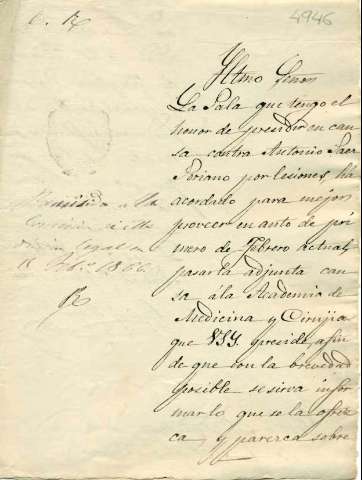 4946
Iltmo Señor
La Sala que tengo el
honor de presidir en cau
sa contra Antonio
Soriano por lesiones, há
acordado para mejor
proveer en auto de pri
mero de Febrero actual,
pasar la adjunta cau
sa á la Academia de
Medicina y Cirujia
que VSY preside, afin
de que con la brevedad
posible se sirva infor
mar lo que se la ofrez
ca y parezca sobre
Comision
legal en
1866.